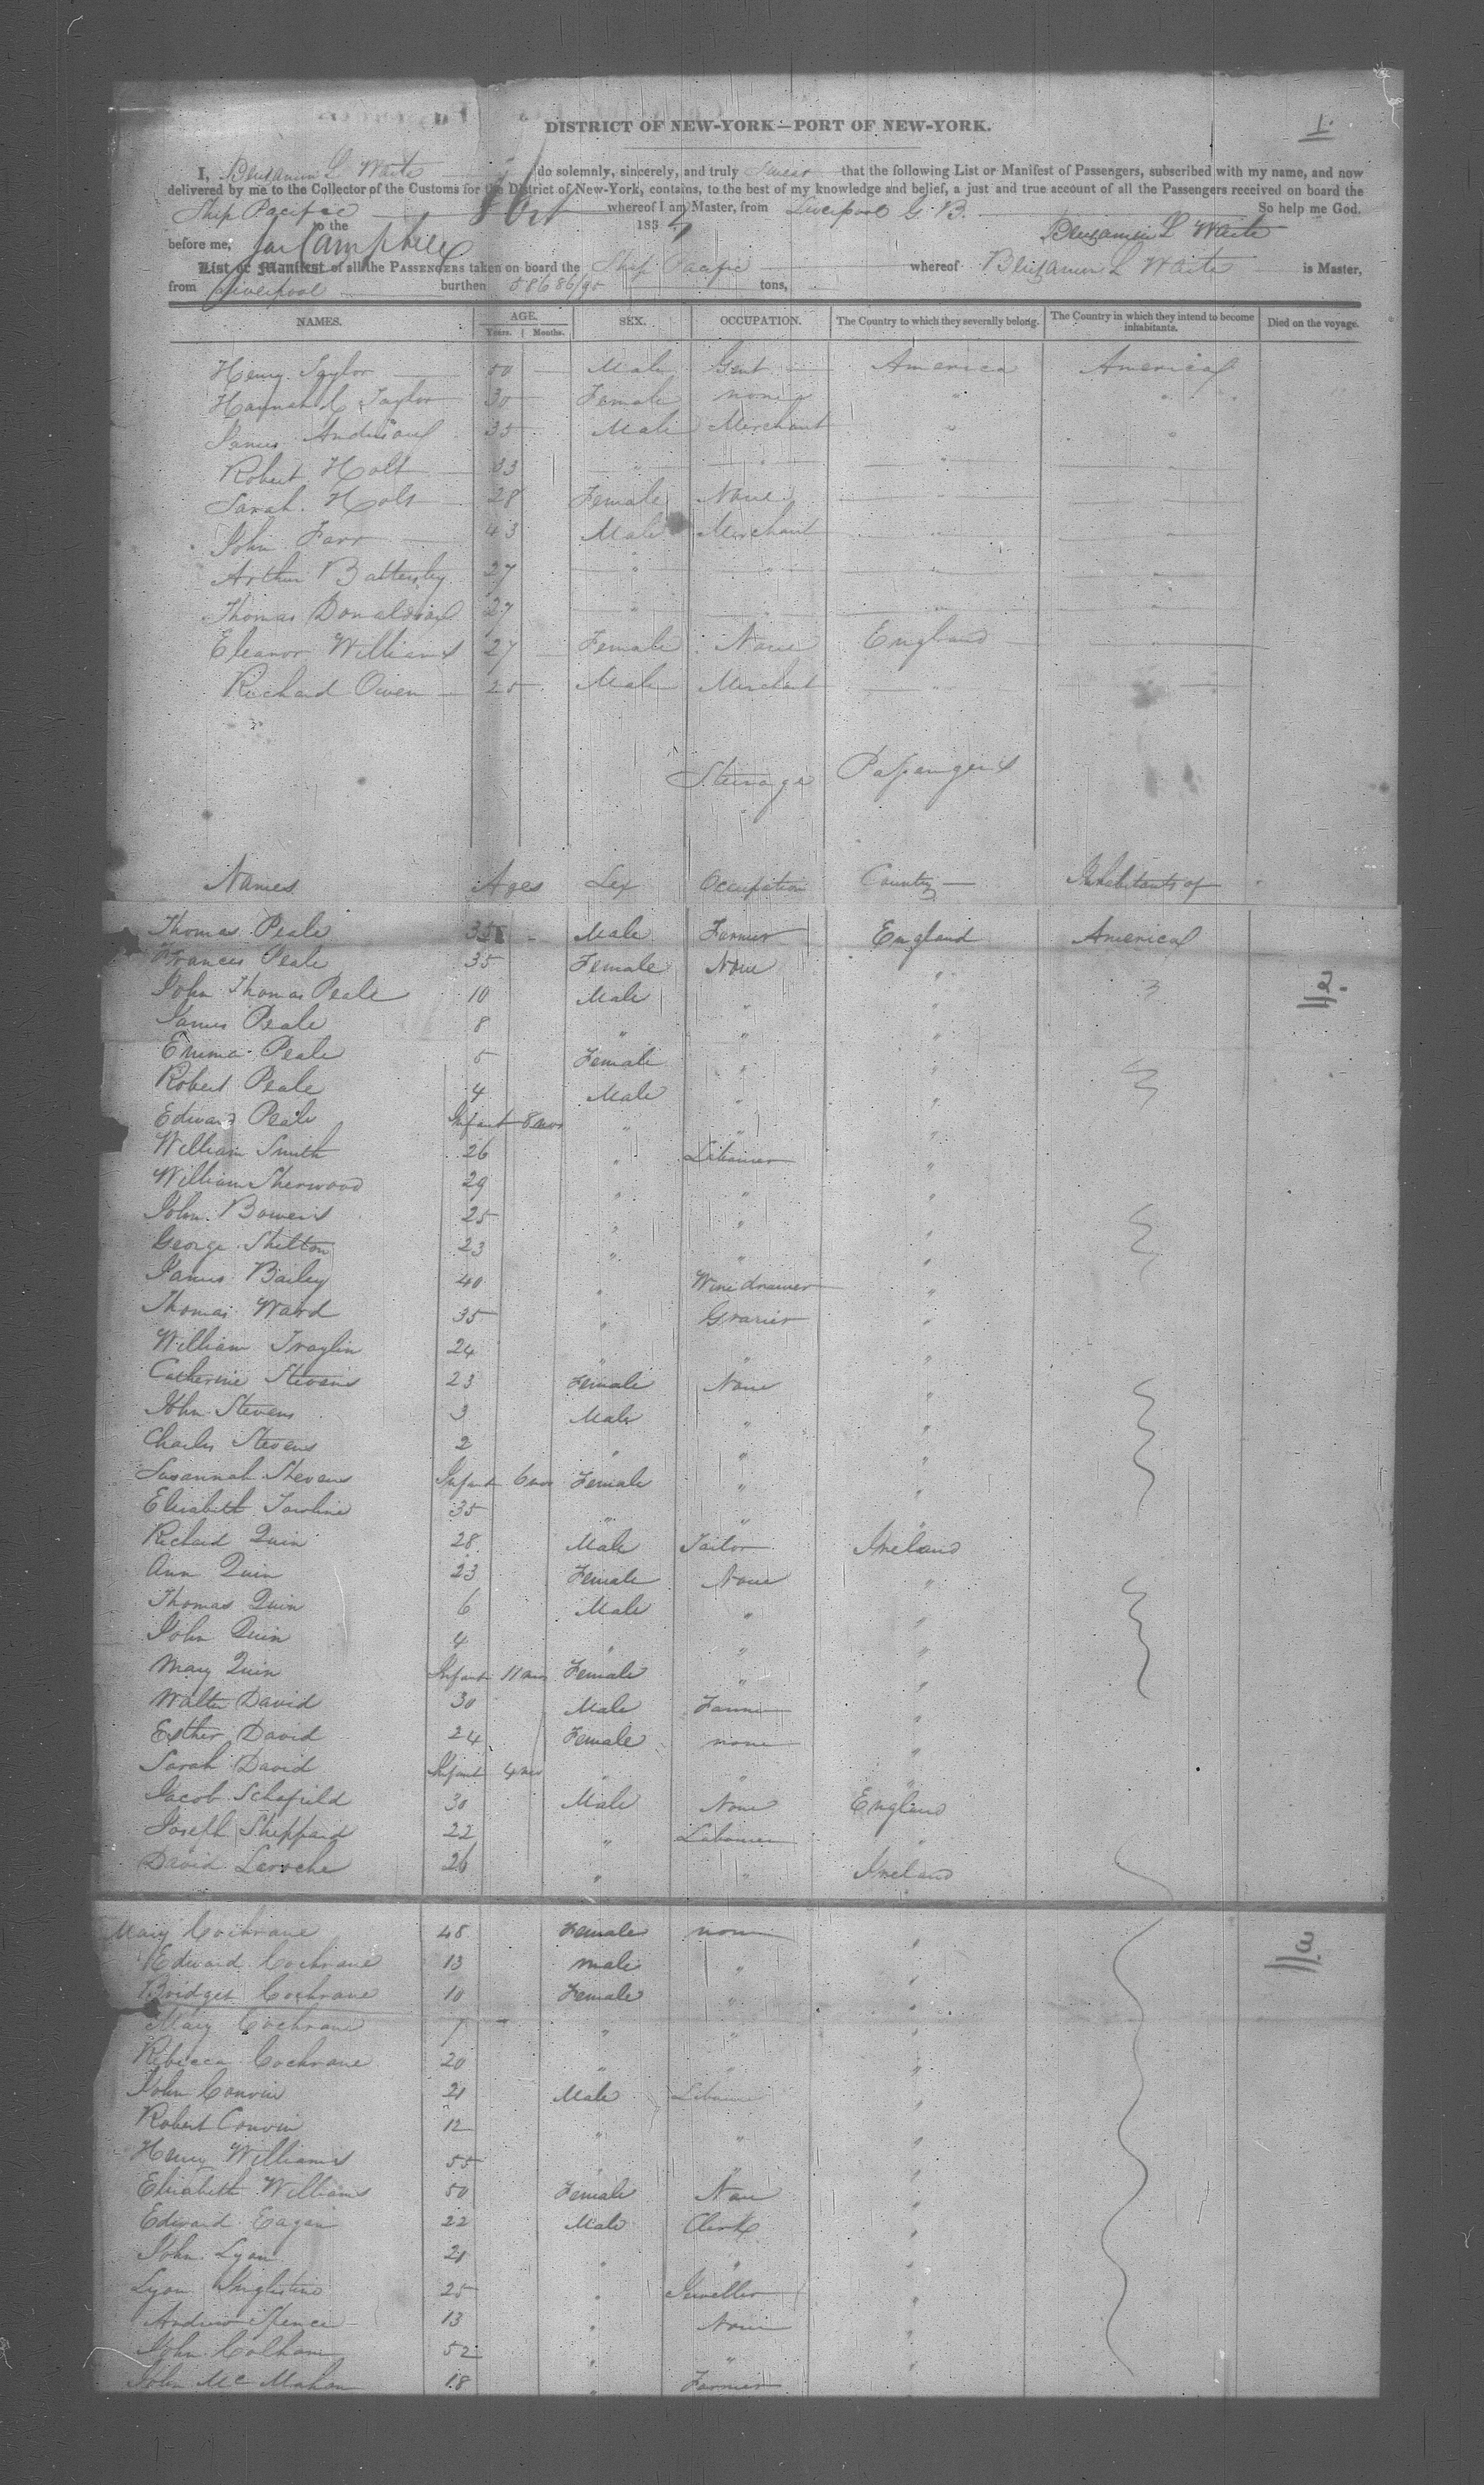 DISTRICT OF NEW-YORK—PORT OF NEW-YORK.
1.
I, Benjamin L Waite do solemnly, sincerely, and truly swear that the following List or Manifest of Passengers, subscribed with my name, and now
delivered by me to the Collector of the Customs for the District of New-York, contains, to the best of my knowledge and belief, a just and true account of all the Passengers received on board the
Ship Pacific whereof I am Master, from Liverpool G. B. So help me God.
to the 8 Oct 183
before me, Campbell Benjamin L Waite
List or Manifest of all the PASSENGERS taken on board the Ship Pacific whereof Benjamin L Waite is Master,
from Liverpool burthen 586 86/95 tons,
NAMES. AGE. Years. Months. SEX. OCCUPATION. The Country to which they severally belong. The Country in which they intend to become inhabitants. Died on the voyage.
Henry Taylor 50 Male Gent America America
Hannah Taylor 30 Female none " "
James Anderson 35 Male Merchant " "
Robert Holt 33 " " " "
Sarah Holt 28 Female None " "
John Farr 43 Male Merchant " "
Arthur Battersby 27 " " " "
Thomas Donaldson 27 " " " "
Eleanor Williams 27 Female None England "
Richard Owen 25 Male Merchant " "
Steerage Passengers
Names Ages Sex Occupation Country Inhabitants of
Thomas Peale 35 Male Farmer England America
Frances Peale 35 Female None "
2.
John Thomas Peale 10 Male " "
James Peale 8 " " "
Emma Peale 5 Female " "
Robert Peale 4 Male " "
Edward Peale Infant 8 mos " " "
William Smith 26 " Labourer "
William Sherwood 29 " " "
John Bowers 25 " " "
George Shelton 23 " " "
James Bailey 40 " Wire drawer "
Thomas Ward 35 " Grazier "
William 24 " " "
Catherine Stevens 23 Female None "
John Stevens 3 Male " "
Charles Stevens 2 " " "
Susannah Stevens Infant 6 mos Female " "
Elisabeth 35 " " "
Richard Quin 28 Male Tailor Ireland
Ann Quin 23 Female None "
Thomas Quin 6 Male " "
John Quin 4 " " "
Mary Quin Infant 11 mos Female " "
Walter David 30 Male Farmer "
Esther David 24 Female none "
Sarah David Infant 4 mos " " "
Jacob Schofield 30 Male None England
Joseph Sheppard 22 " Labourer "
David Laroche 26 " " Ireland
Mary Cochrane 48 Female none "
3
Edward Cochrane 13 male " "
Bridget Cochrane 10 Female " "
Mary Cochrane 7 " " "
Rebecca Cochrane 20 " " "
John 21 Male Labourer "
Robert 12 " " "
Henry Williams 55 " " "
Elisabeth Williams 50 Female None "
Edward Eagan 22 Male Clerk "
John Lyon 21 " " "
Lyon 25 " Jeweller "
Andrew Spence 13 " None "
John Colham 52 " " "
John McMahon 18 " Farmer "